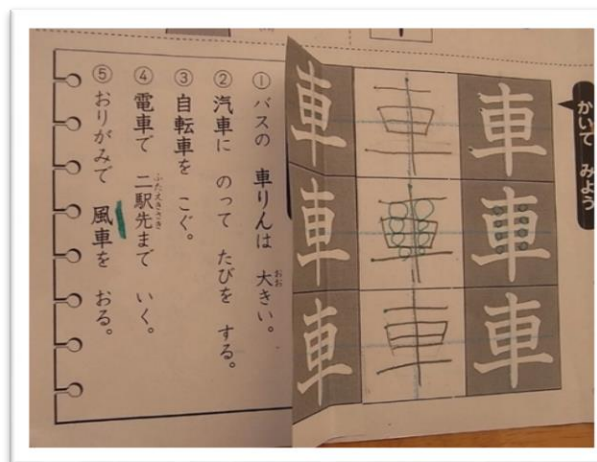 かいて みよう
車 車 車
車 車 車
車 車 車
① バスの 車りんは 大きい。
おお
② 汽車に のって たびを する。
③ 自転車を こぐ。
④ 電車で 二駅先まで いく。
ふたえきさき
⑤ おりがみで 風車を おる。